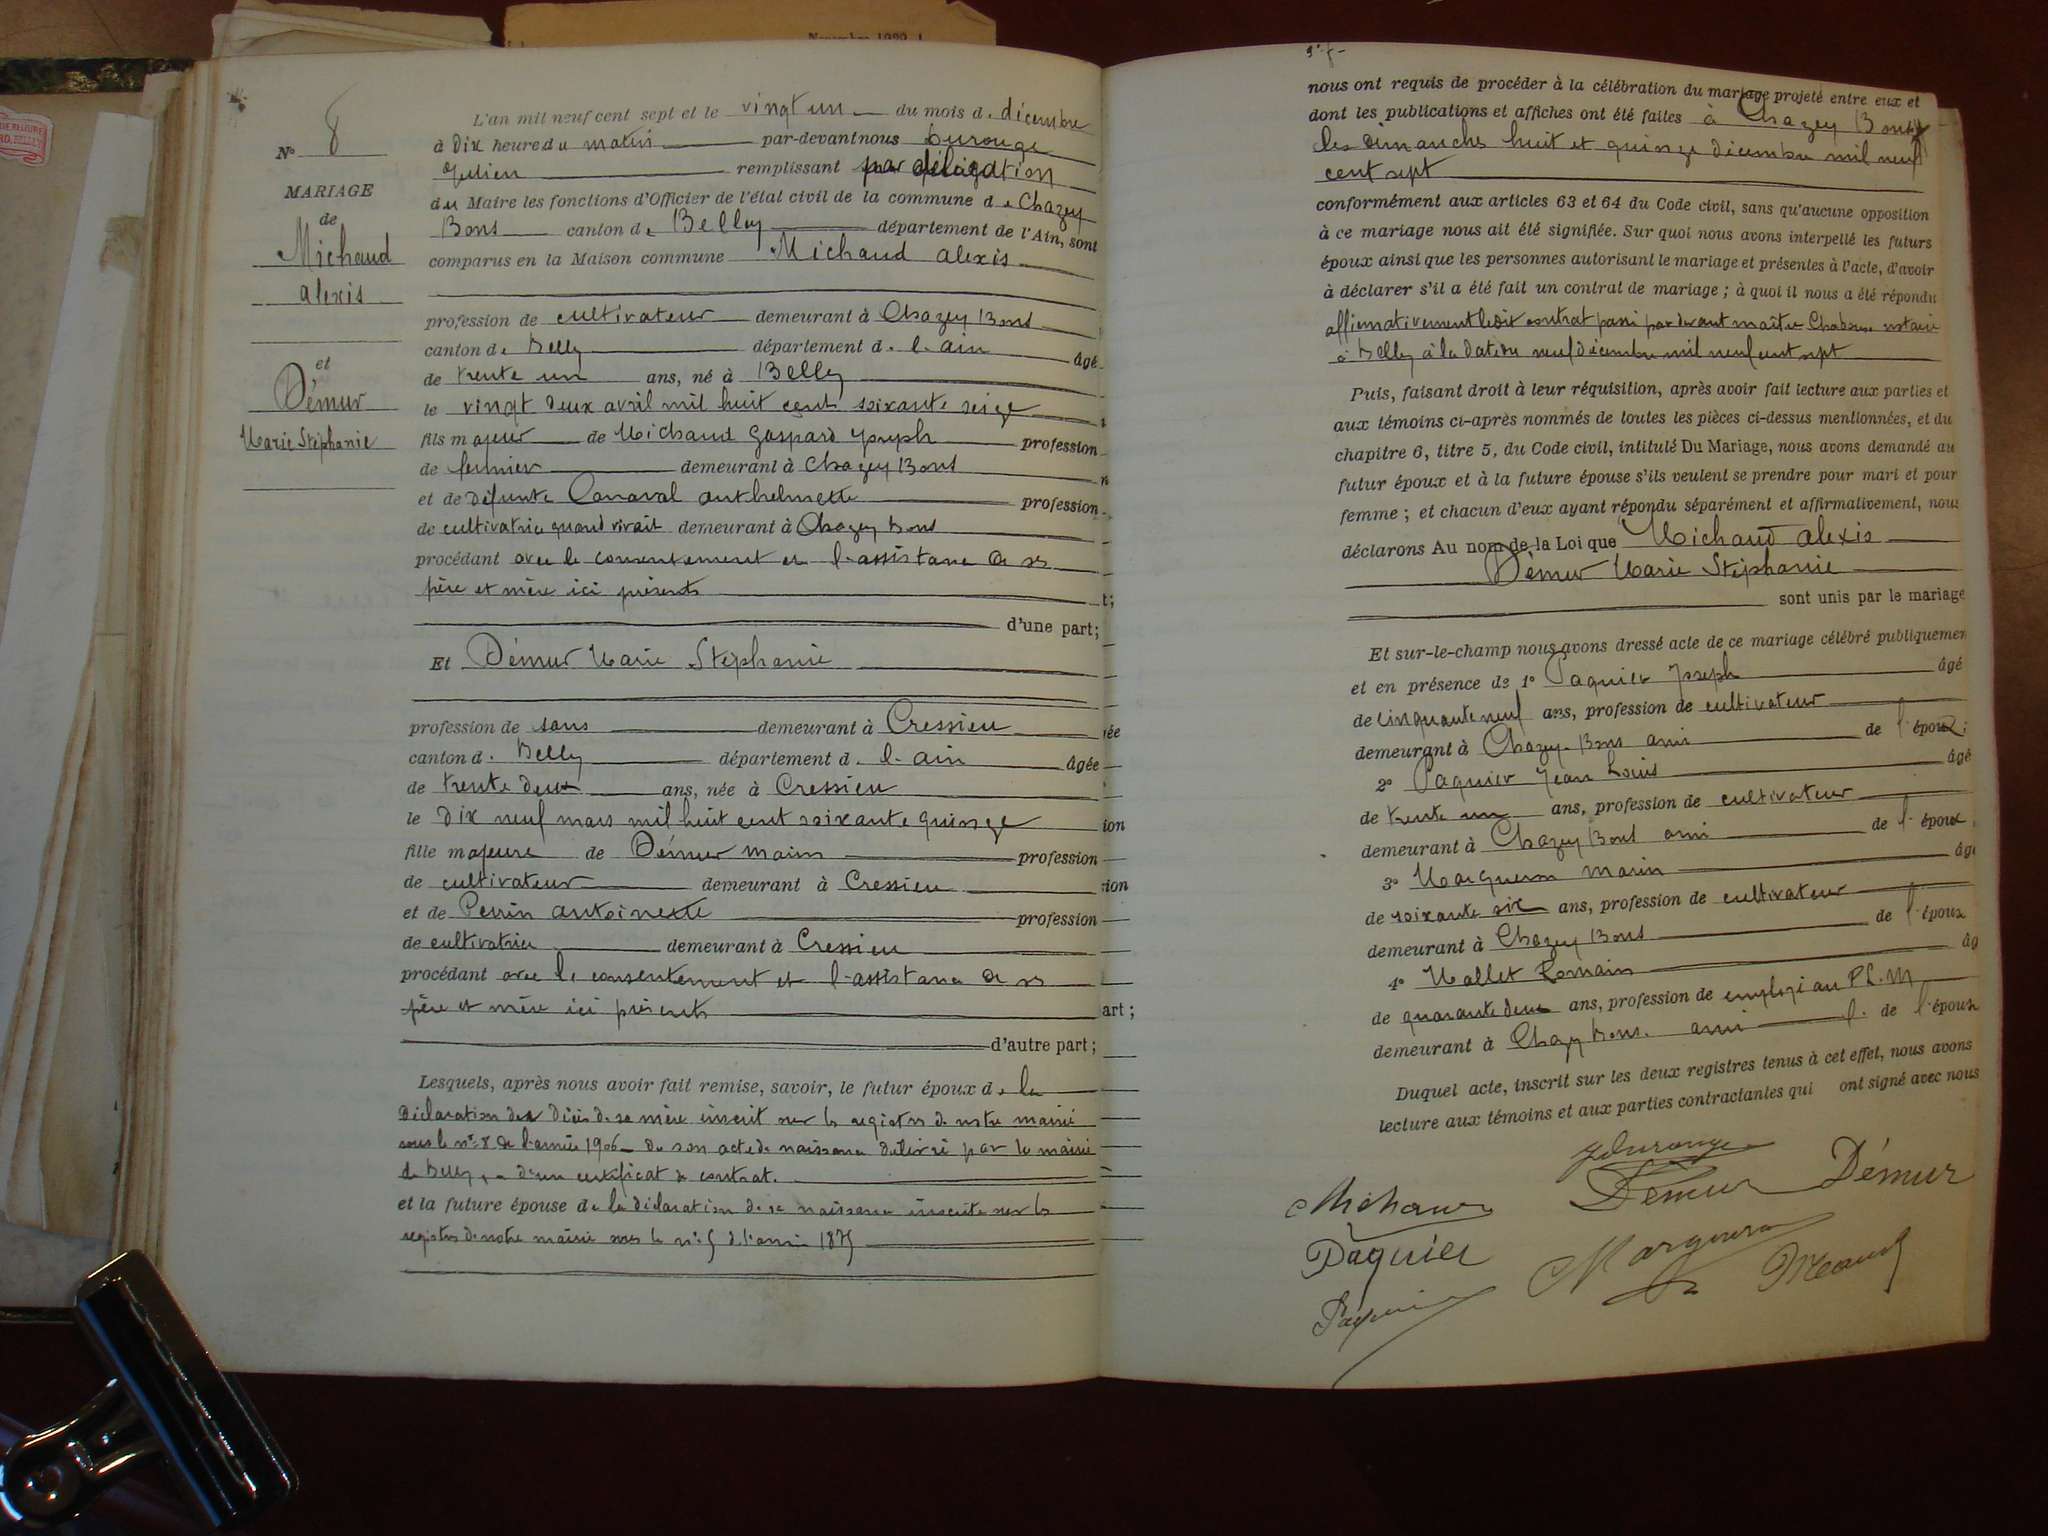 Novembre 1929
DE RELIURE
RD, BELLEY
N° 8
MARIAGE
de
Michaud
alexis
et
Démur
Marie Stéphanie
L'an mil neuf cent sept et le vingt un du mois d. décembre
à dix heure du matin par-devant nous Durouge
Julien remplissant par délégation
du Maire les fonctions d'Officier de l'état civil de la commune de Chazey
Bons canton de Belley département de l'Ain, sont
comparus en la Maison commune Michaud alexis
profession de cultivateur demeurant à Chazey Bons
canton de Belley département d. l'ain âgé
de trente un ans, né à Belley
le vingt deux avril mil huit cent soixante seize
fils majeur de Michaud Gaspard Joseph profession
de fermier demeurant à Chazey Bons
et de défunte Canaval anthelmette profession
de cultivatrice quand vivait demeurant à Chazey Bons
procédant avec le consentement et l'assistance de ses
père et mère ici présents
d'une part;
Et Démur Marie Stéphanie
profession de sans demeurant à Cressieu
canton d. Belley département d. l'ain âgée
de trente deux ans, née à Cressieu
le dix neuf mars mil huit cent soixante quinze
fille majeure de Démur Marin profession
de cultivateur demeurant à Cressieu
et de Perrin antoinette profession
de cultivatrice demeurant à Cressieu
procédant avec le consentement et l'assistance de ses
père et mère ici présents
d'autre part;
Lesquels, après nous avoir fait remise, savoir, le futur époux de la
déclaration du décès de sa mère inscrit sur les registres de notre mairie
sous le n° 8 de l'année 1906 - de son acte de naissance délivré par la mairie
de Belley, - d'un certificat de contrat.
et la future épouse de la déclaration de sa naissance inscrite sur les
registres de notre mairie sous le n° 5 de l'année 1875
nous ont requis de procéder à la célébration du mariage projeté entre eux et
dont les publications et affiches ont été faites à Chazey Bons
les dimanches huit et quinze décembre mil neuf
cent sept
conformément aux articles 63 et 64 du Code civil, sans qu'aucune opposition
à ce mariage nous ait été signifiée. Sur quoi nous avons interpellé les futurs
époux ainsi que les personnes autorisant le mariage et présentes à l'acte, d'avoir
à déclarer s'il a été fait un contrat de mariage; à quoi il nous a été répondu
affirmativement ledit contrat passé par devant maître notaire
à Belley à la date du neuf décembre mil neuf cent sept
Puis, faisant droit à leur réquisition, après avoir fait lecture aux parties et
aux témoins ci-après nommés de toutes les pièces ci-dessus mentionnées, et du
chapitre 6, titre 5, du Code civil, intitulé Du Mariage, nous avons demandé au
futur époux et à la future épouse s'ils veulent se prendre pour mari et pour
femme; et chacun d'eux ayant répondu séparément et affirmativement, nous
déclarons Au nom de la Loi que Michaud alexis
Démur Marie Stéphanie
sont unis par le mariage
Et sur-le-champ nous avons dressé acte de ce mariage célébré publiquemen
et en présence de 1° Paquier Joseph âgé
de cinquante neuf ans, profession de cultivateur
demeurant à Chazey-Bons ami de l'époux;
2° Paquier Jean Louis âgé
de trente un ans, profession de cultivateur
demeurant à Chazey Bons ami de l'époux
3° Margueron Marin âgé
de soixante six ans, profession de cultivateur
demeurant à Chazey Bons de l'époux
4° Mallet Romain âg
de quarante deux ans, profession de employé au P.L.M
demeurant à Chazey Bons. ami de l'époux
Duquel acte, inscrit sur les deux registres tenus à cet effet, nous avons
lecture aux témoins et aux parties contractantes qui ont signé avec nous
J Durouge
Michaud Démur Démur
Paquier Margueron
Paquier